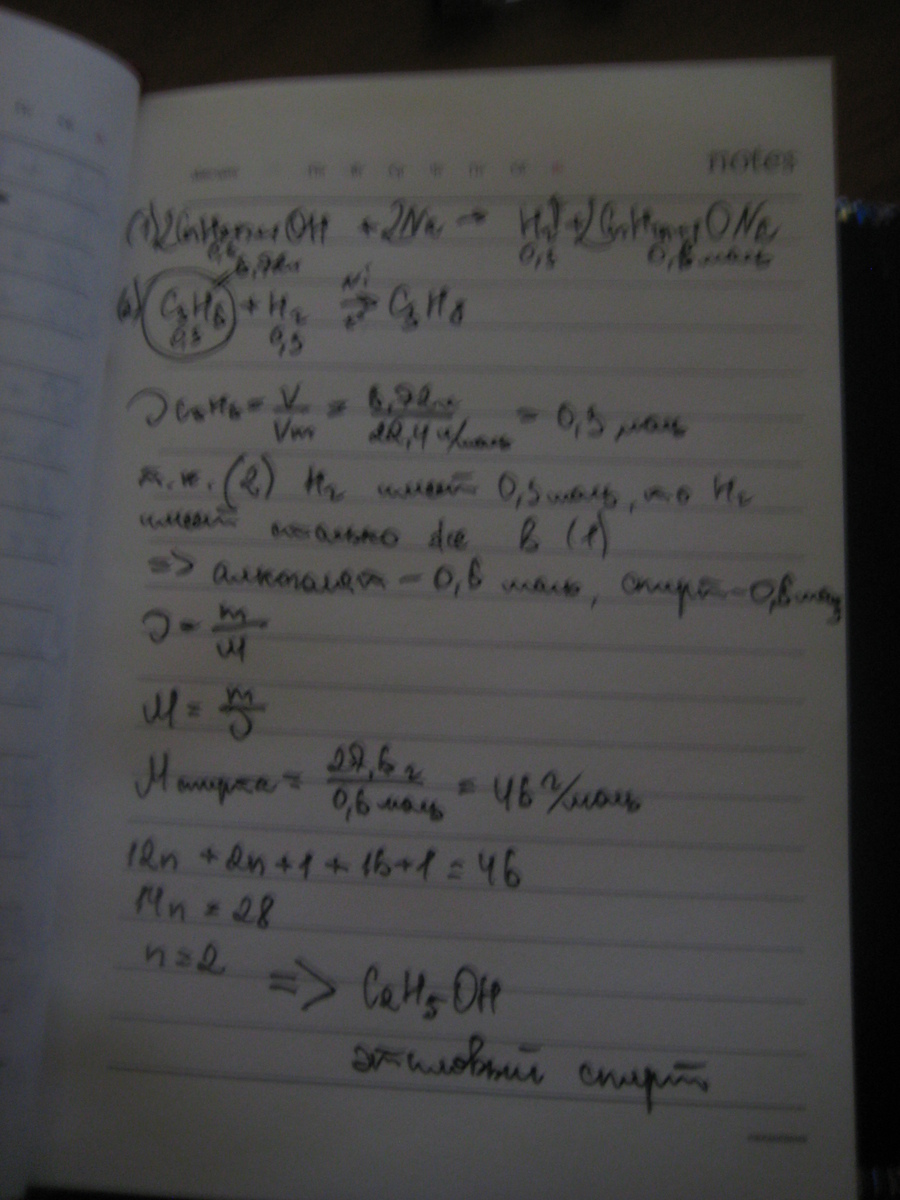 notes
(1) 2CnH2n+1OH + 2Na → H2↑ + 2CnH2n+1ONa
0,6 0,3 0,6 моль
6,72л
(2) C3H6 + H2 →Ni t° C3H8
0,3 0,3
νC3H6 = V/Vm = 6,72л/22,4 л/моль = 0,3 моль
т.к. (2) H2 имеет 0,3 моль, то H2
имеет столько же в (1)
=> алкоголят – 0,6 моль, спирт – 0,6 моль
ν = m/M
M = m/ν
Mспирта = 27,6 г/0,6 моль = 46 г/моль
12n + 2n + 1 + 16 + 1 = 46
14n = 28
n = 2 => C2H5OH
этиловый спирт